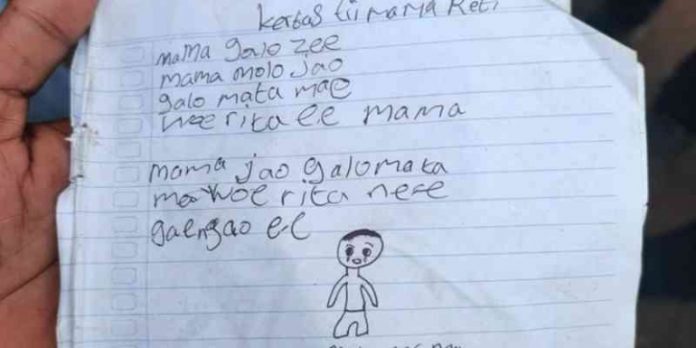 kertas tii mama Reti
mama galo zee
mama molo jao
galo mata mae
woe rita ee mama
mama jao galo mata
mae woe rita ne e
gae ngao ee